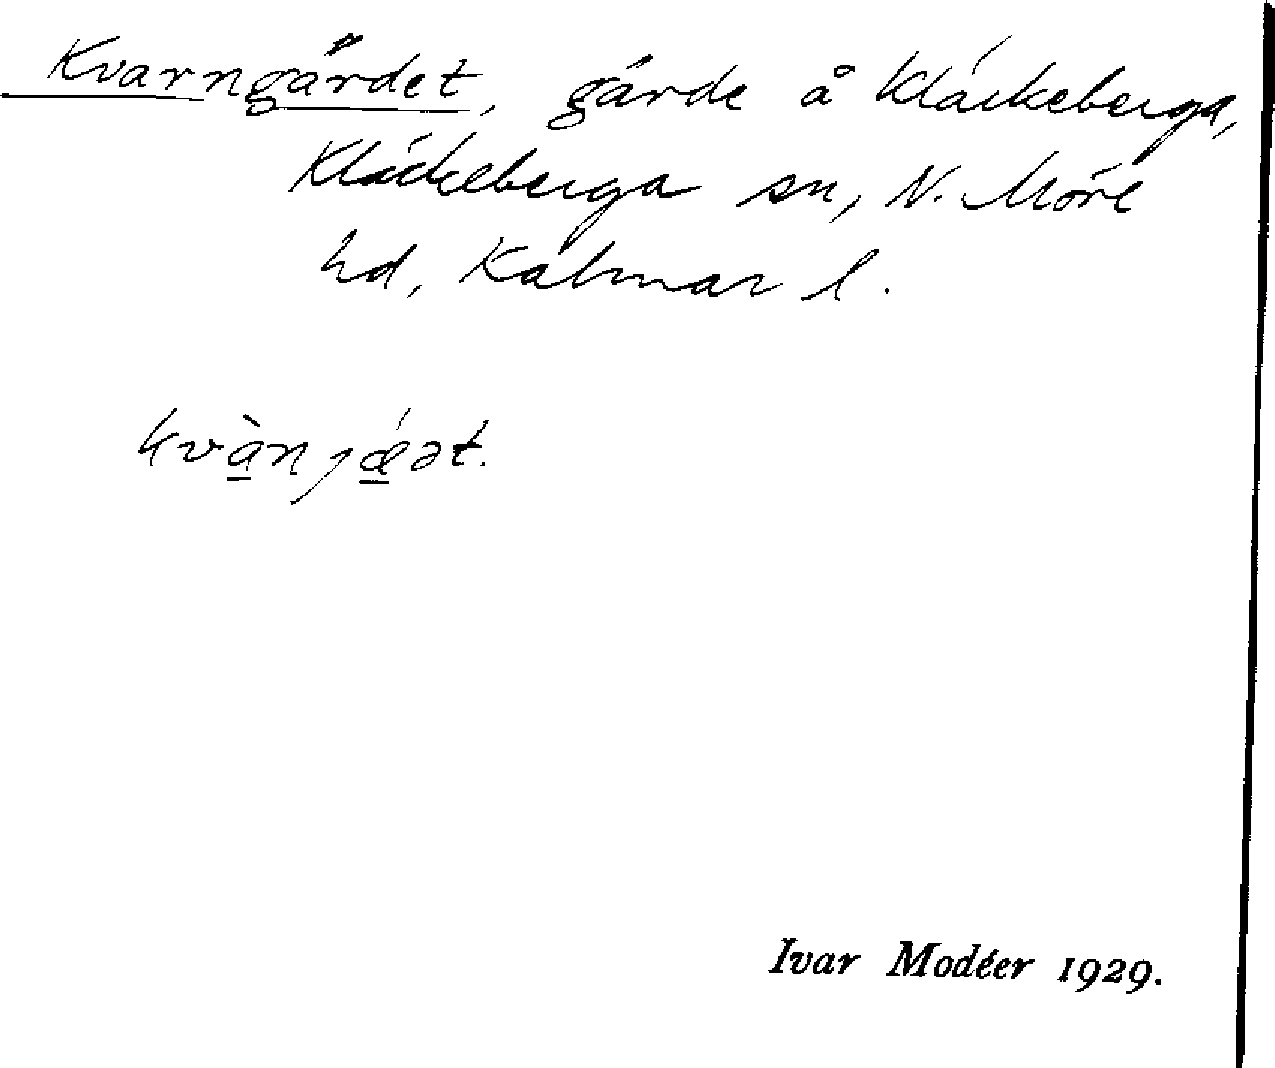 Kvarngärdet, gärde å Kläckeberga,
Kläckeberga sn, N. Möre
hd, Kalmar l.
kvànjǽət.
Ivar Modéer 1929.